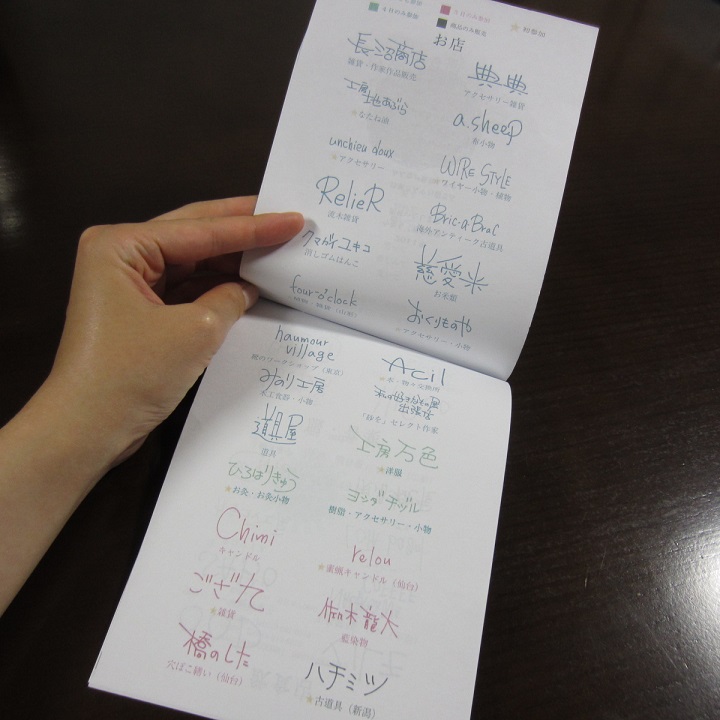 4日のみ
お店
長沼商店
雑貨・作家作品販売
典典
アクセサリー雑貨
工房
地あぶら
★なたね油
a.sheep
布小物
unchieu doux
★アクセサリー
WIRE STYLE
★ワイヤー小物・植物
RelieR
流木雑貨
Bric-a-Brac
海外アンティーク古道具
クマガイユキコ
消しゴムはんこ
慈愛米
お米屋
four-o'clock
おくりものや
☆アクセサリー・小物
haumour
village
(東京)
Acil
みのり工房
木工食器・小物
出張店
セレクト作家
道具屋
道具
工房万色
★洋服
ひろはりきゅう
★お灸・お灸小物
ヨシダチヅル
樹脂・アクセサリー・小物
Chimi
キャンドル
relou
★蜜蝋キャンドル(仙台)
ござれ
★雑貨
佐々木龍大
藍染物
橋のした
穴ぼこ繕い(仙台)
ハチミツ
★古道具(新潟)